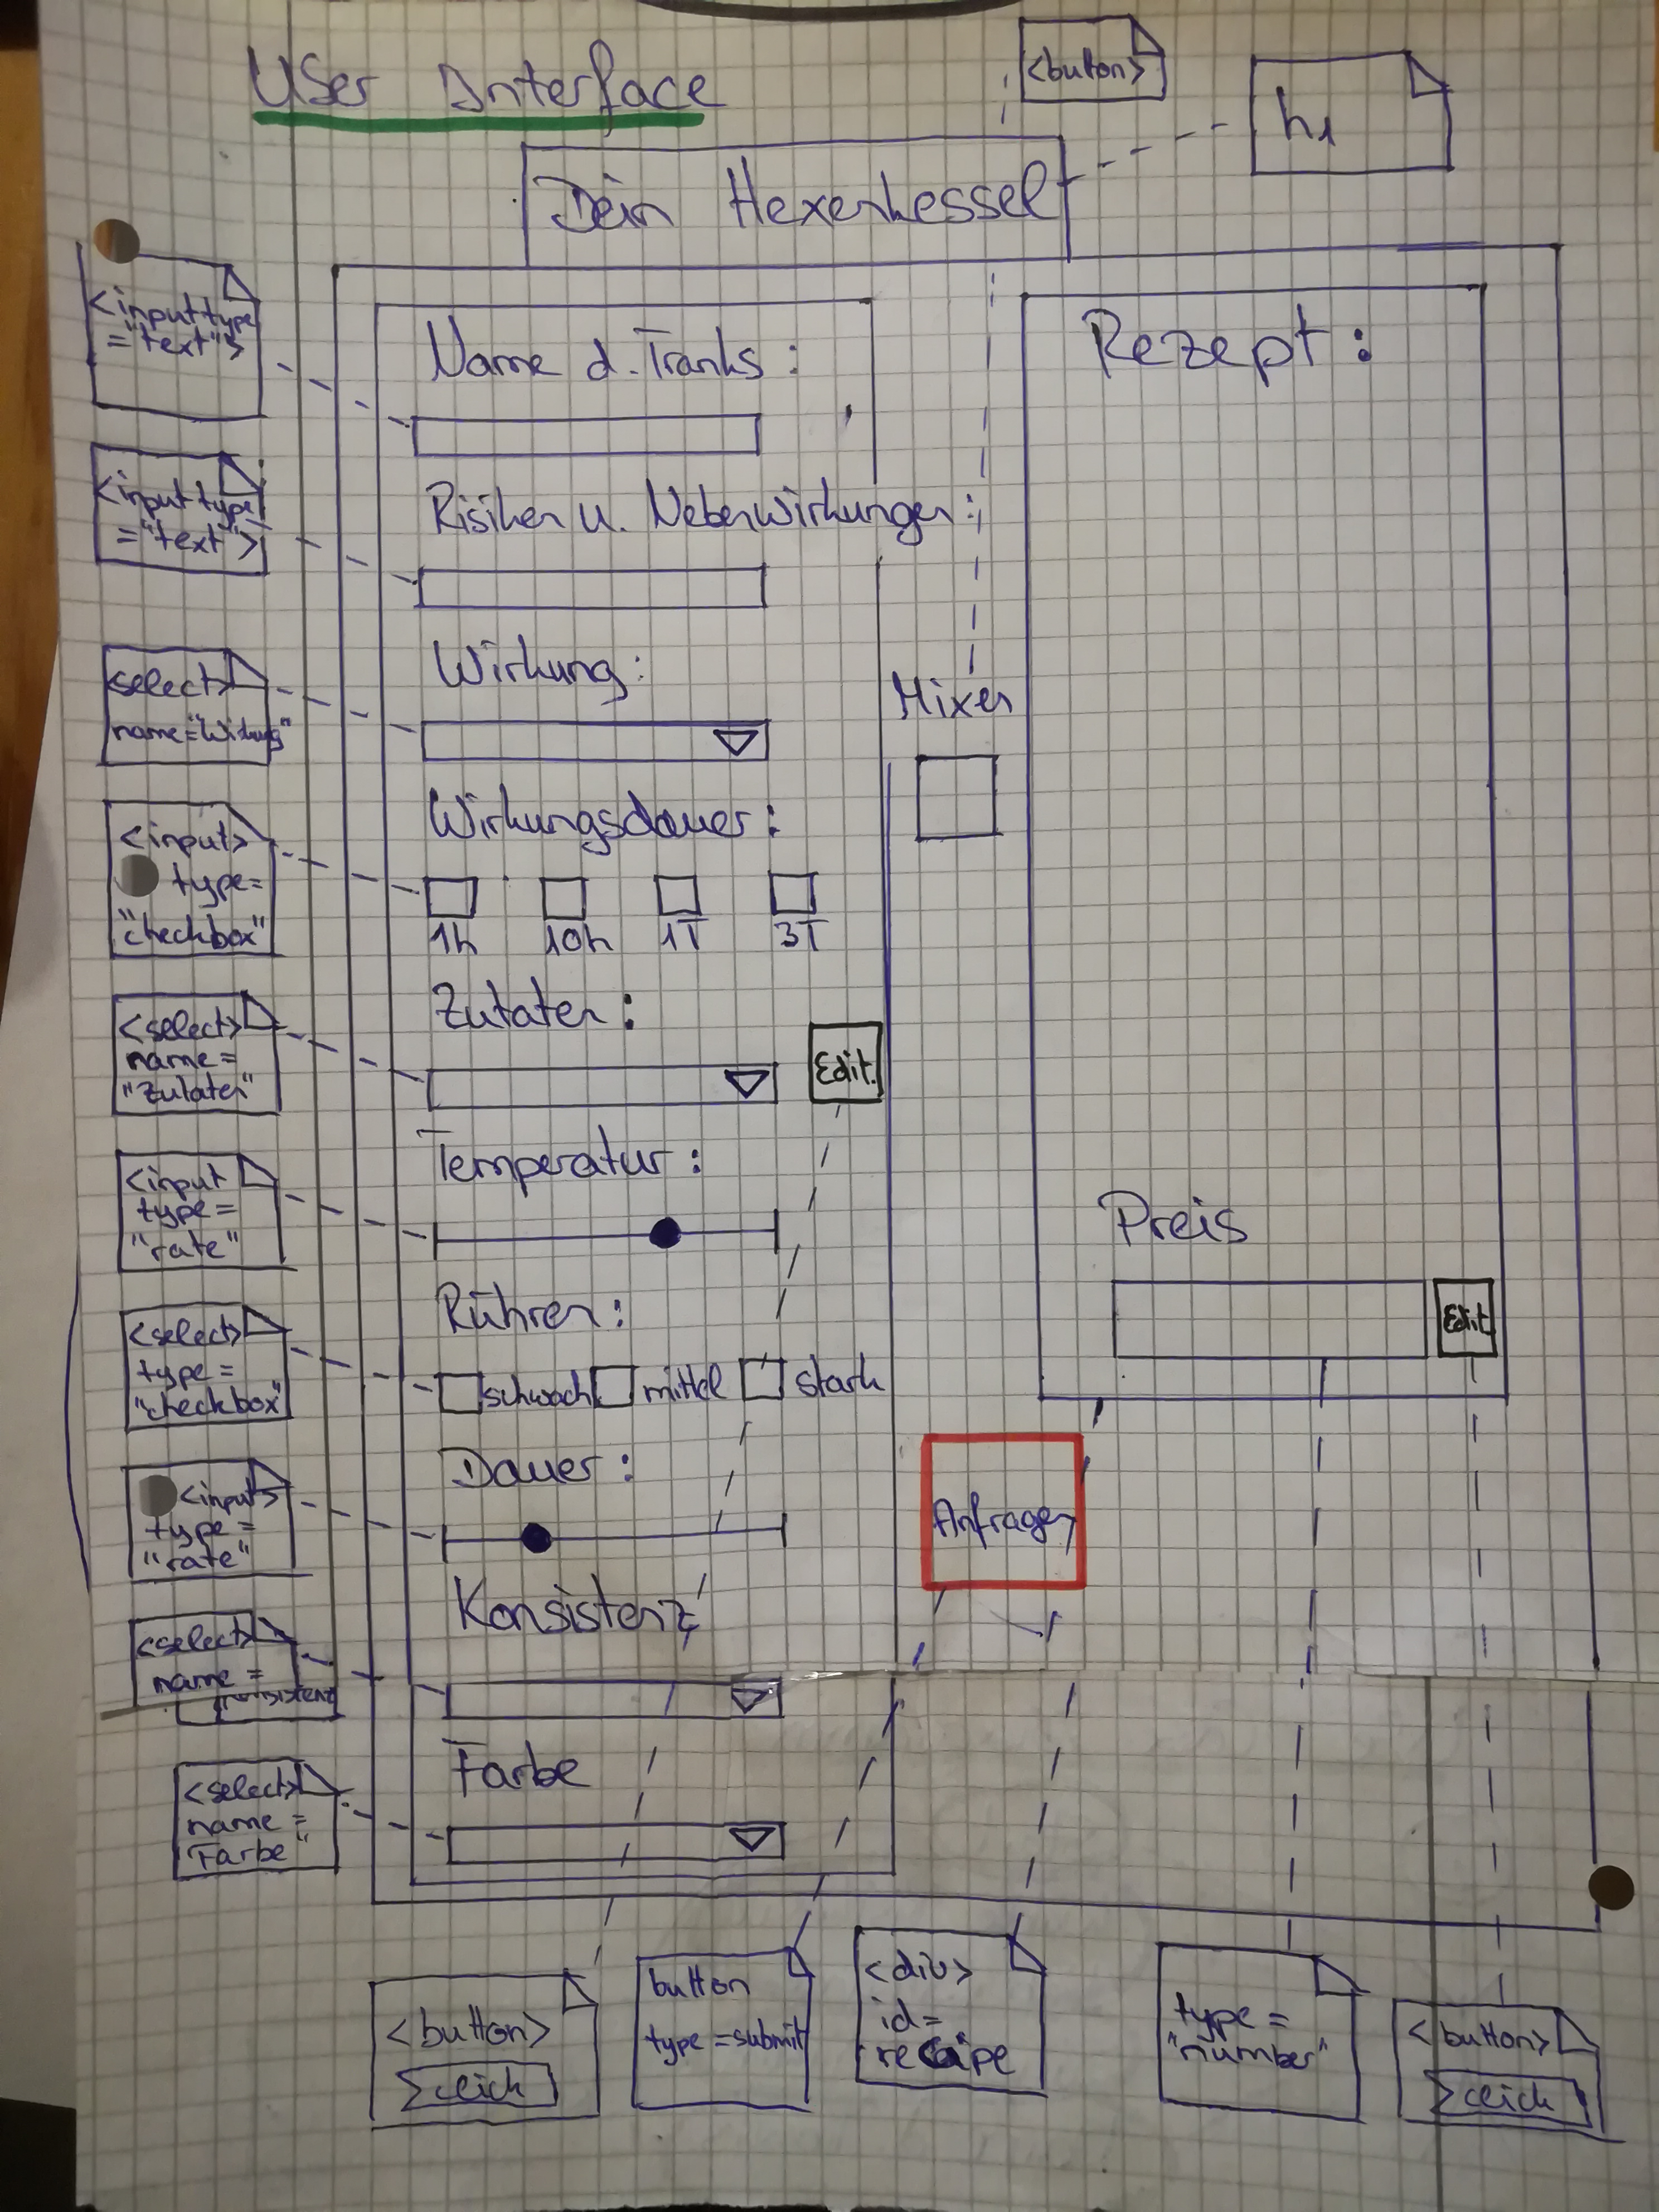 User Interface
<button>
h1
Dein Hexenkessel
<input type
="text">
Name d. Tranks:
Rezept:
<input type
="text">
Risiken u. Nebenwirkungen:
<select>
name="Wirkung"
Wirkung:
Mixen
<input>
type=
"checkbox"
Wirkungsdauer:
1h 10h 1T 3T
<select>
name=
"Zutaten"
Zutaten:
Edit.
<input
type=
"rate"
Temperatur:
Preis
Edit
<select>
type=
"checkbox"
Rühren:
schwach mittel stark
<input>
type=
"rate"
Dauer:
Anfragen
<select>
name=
Konsistenz
Konsistenz
<select>
name=
Farbe"
Farbe
<button>
click
button
type=submit
<div>
id=
recipe
type=
"number"
<button>
click